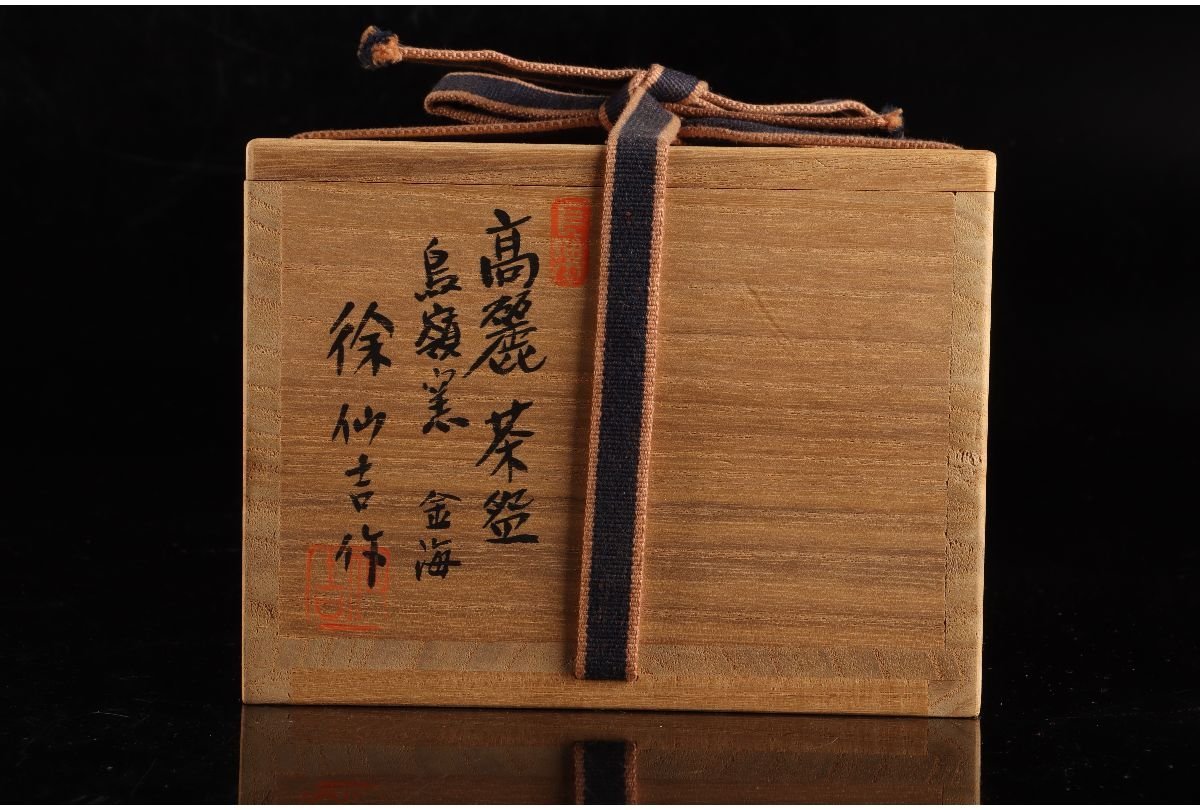 高麗茶盌
鳥嶺窯 金海
徐仙吉作